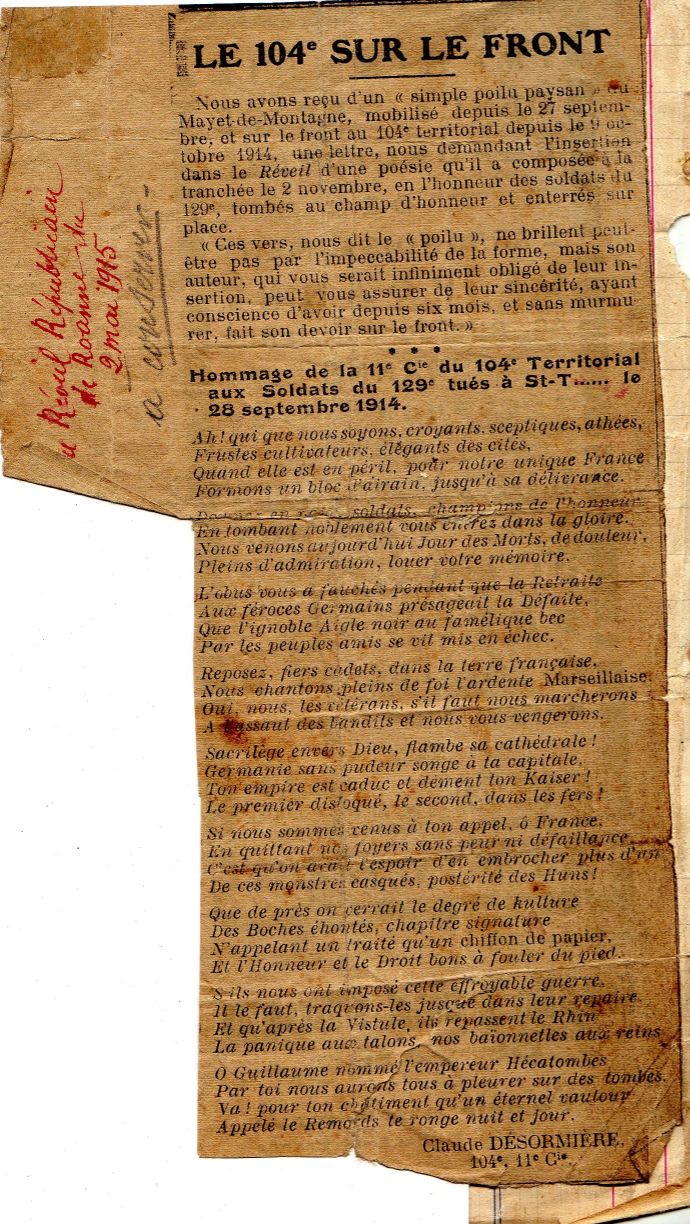 LE 104e SUR LE FRONT
Nous avons reçu d'un « simple poilu paysan » du
Mayet-de-Montagne, mobilisé depuis le 27 septem-
bre, et sur le front au 104e territorial depuis le 9 oc-
tobre 1914, une lettre, nous demandant l'insertion
dans le Réveil d'une poésie qu'il a composée à la
tranchée le 2 novembre, en l'honneur des soldats du
129e, tombés au champ d'honneur et enterrés sur
place.
« Ces vers, nous dit le « poilu », ne brillent peut-
être pas par l'impeccabilité de la forme, mais son
auteur, qui vous serait infiniment obligé de leur in-
sertion, peut vous assurer de leur sincérité, ayant
conscience d'avoir depuis six mois, et sans murmu-
rer, fait son devoir sur le front. »
* * *
Hommage de la 11e Cie du 104e Territorial
aux Soldats du 129e tués à St-T...... le
28 septembre 1914.
Ah ! qui que nous soyons, croyants, sceptiques, athées,
Frustes cultivateurs, élégants des cités,
Quand elle est en péril, pour notre unique France
Formons un bloc d'airain, jusqu'à sa délivrance.
en soldats, champions de l'honneur
En tombant noblement vous entrez dans la gloire.
Nous venons aujourd'hui Jour des Morts, de douleur,
Pleins d'admiration, louer votre mémoire.
L'obus vous a fauchés pendant que la Retraite
Aux féroces Germains présageait la Défaite,
Que l'ignoble Aigle noir au famélique bec
Par les peuples amis se vit mis en échec.
Reposez, fiers cadets, dans la terre française,
Nous chantons pleins de foi l'ardente Marseillaise.
Oui, nous, les vétérans, s'il faut nous marcherons
A l'assaut des bandits et nous vous vengerons.
Sacrilège envers Dieu, flambe sa cathédrale !
Germanie sans pudeur songe à ta capitale,
Ton empire est caduc et dément ton Kaiser !
Le premier disloqué, le second, dans les fers !
Si nous sommes venus à ton appel, ô France,
En quittant nos foyers sans peur ni défaillance,
C'est qu'on avait l'espoir d'en embrocher plus d'un
De ces monstres casqués, postérité des Huns !
Que de près on verrait le degré de kulture
Des Boches éhontés, chapitre signature
N'appelant un traité qu'un chiffon de papier,
Et l'Honneur et le Droit bons à fouler du pied.
S'ils nous ont imposé cette effroyable guerre,
Il le faut, traquons-les jusque dans leur repaire,
Et qu'après la Vistule, ils repassent le Rhin
La panique aux talons, nos baïonnettes aux reins
O Guillaume nommé l'empereur Hécatombes
Par toi nous aurons tous à pleurer sur des tombes.
Va ! pour ton châtiment qu'un éternel vautour
Appelé le Remords te ronge nuit et jour.
Claude DÉSORMIÈRE,
104e, 11e Cie.
Réveil Républicain
de Roanne du
2 mai 1915
a conserver -